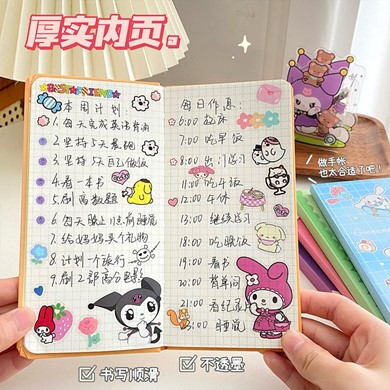 厚实内页。
BEST FRIENDS
本周计划
1.每天完成英语背诵
2.坚持5天晨跑
3.坚持5天自己做饭
4.看一本书
5.刷高数题
6.每天晚上11点前睡觉
7.给妈妈买个礼物
8.计划一个旅行
9.刷2部高分电影
每日作息:
6:00 起床
7:00 吃早饭
8:00 出门学习
11:00 吃午饭
12:00 午休
13:00 继续学习
18:00 吃晚饭
19:00 看书
20:00 背单词
21:00 看纪录片
睡觉
做手帐
也太合适了吧!
书写顺滑
不透墨